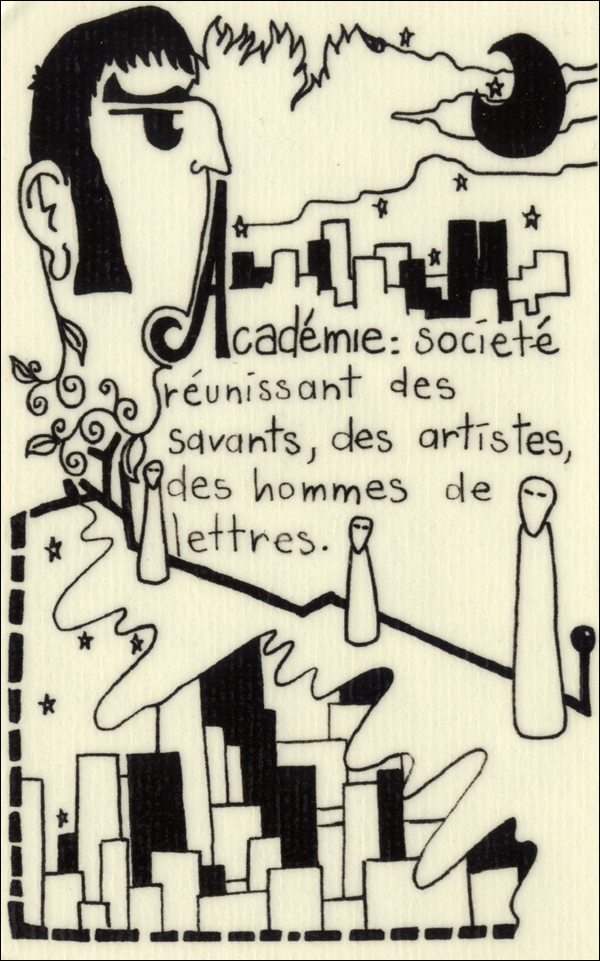 Académie: societé
réunissant des
savants, des artistes,
des hommes de
lettres.